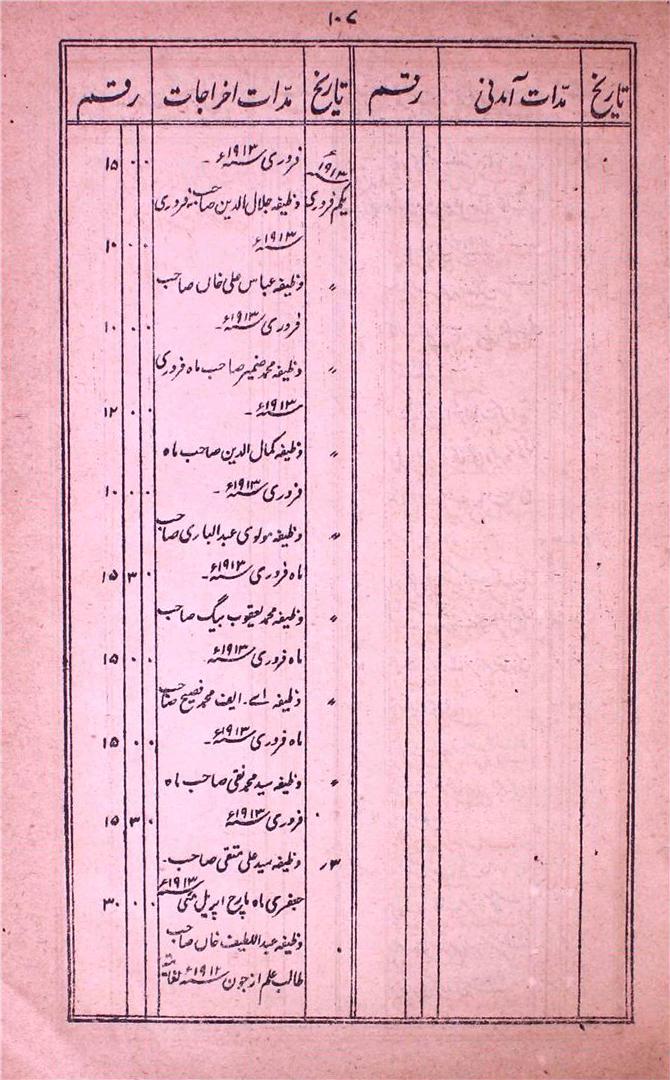 ۱۰۷
تاریخ مدّات آمدنی رقم تاریخ مدّات اخراجات رقم
۱۹۱۳ء فروری ۱۹۱۳ء۔ ۱۵ ۰ ۰
یکم فروری وظیفہ جلال الدین صاحب فروری
۱۹۱۳ء ۱۰ ۰ ۰
〃 وظیفہ عباس علی خاں صاحب
فروری ۱۹۱۳ء۔ ۱۰ ۰ ۰
〃 وظیفہ محمد ضمیر صاحب ماہ فروری
۱۹۱۳ء۔ ۱۲ ۰ ۰
〃 وظیفہ کمال الدین صاحب ماہ
فروری ۱۹۱۳ء۔ ۱۰ ۰ ۰
〃 وظیفہ مولوی عبدالباری صاحب
ماہ فروری ۱۹۱۳ء۔ ۱۵ ۳ ۰
〃 وظیفہ محمد یعقوب بیگ صاحب
ماہ فروری ۱۹۱۳ء ۱۵ ۰ ۰
〃 وظیفہ اے۔ ایف محمد فصیح صاحب
ماہ فروری ۱۹۱۳ء۔ ۱۵ ۰ ۰
〃 وظیفہ سید محمد نقی صاحب ماہ
فروری ۱۹۱۳ء ۱۵ ۳ ۰
۳ر وظیفہ سید علی متقی صاحب۔
جعفری ماہ مارچ اپریل مئی ۱۹۱۳ء ۳۰ ۰ ۰
وظیفہ عبداللطیف خاں صاحب
طالب علم از جون ۱۹۱۲ء لغایتہ